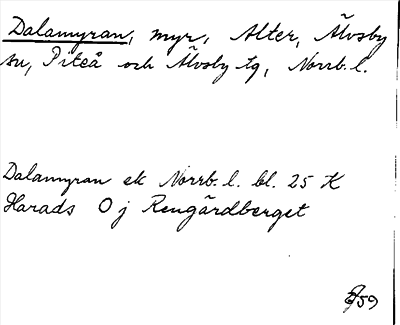 Dalamyran, myr, Alter, Älvsby
sn, Piteå och Älvsby tg, Norrb. l.
Dalamyran ek Norrb. l. bl. 25 K
Harads O j Rengårdberget
59